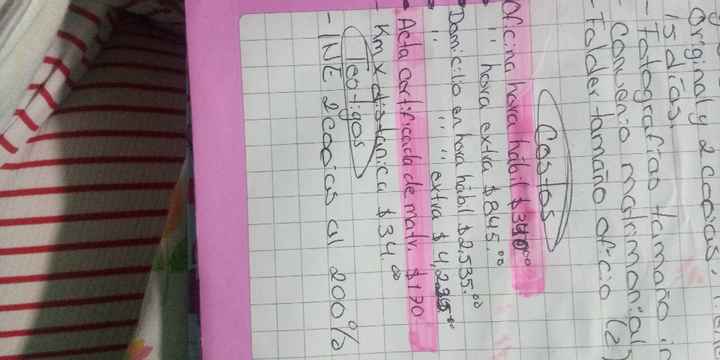 Original y 2 copias.
15 días.
- Fotografias tamaño in
- Convenio matrimonial
- Folder tamaño oficio (2)
Costos
Oficina hora hábil $340.00
" hora extra $845.00
Domicilio en hora hábil $2,535.00
" " " extra $4,225.00
Acta certificada de matr. $170
Km x distanica $34.00
Testigos
- INE 2 copias al 200%